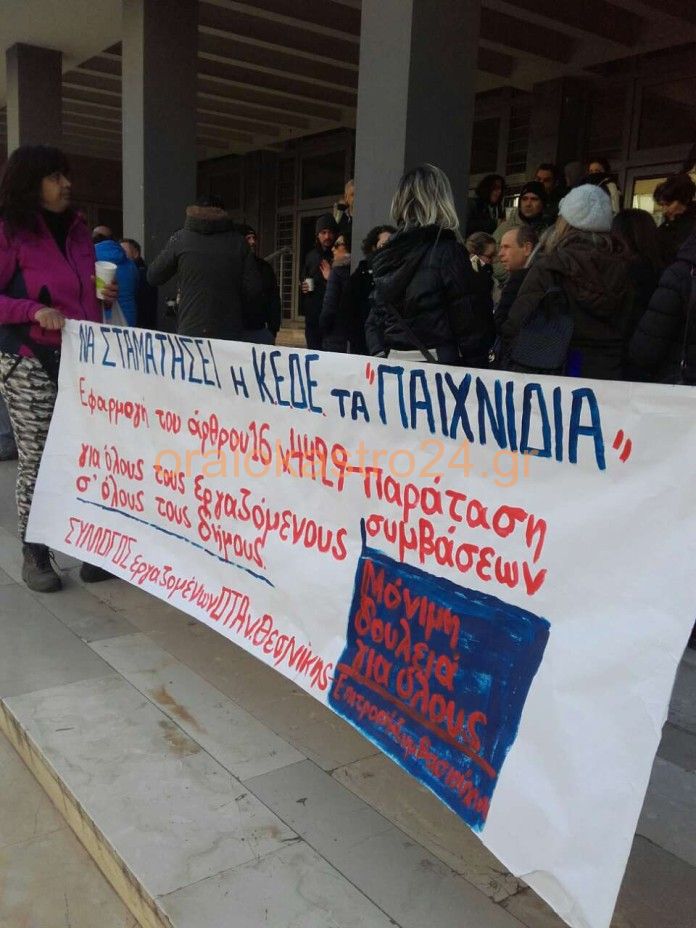 ΝΑ ΣΤΑΜΑΤΗΣΕΙ Η Κ.Ε.Δ.Ε. ΤΑ "ΠΑΙΧΝΙΔΙΑ"
Εφαρμογή του άρθρου 16
-Παράταση
για όλους τους εργαζόμενους
συμβάσεων
σ' όλους τους δήμους.
ΣΥΛΛΟΓΟΣ Εργαζομένων ΟΤΑ ν. Θεσ/νίκης-
Μόνιμη
δουλειά
για όλους
oraiokastro24.gr